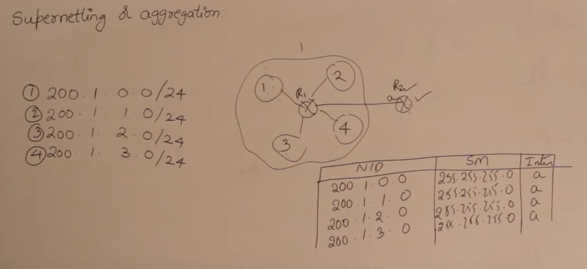 Supernetting & aggregation.
1
① 200.1.0.0/24
② 200.1.1.0/24
③ 200.1.2.0/24
④ 200.1.3.0/24
1
2
3
4
R₁
R₂
a
NID SM Inter
200.1.0.0 255.255.255.0 a
200.1.1.0 255.255.255.0 a
200.1.2.0 255.255.255.0 a
200.1.3.0 255.255.255.0 a